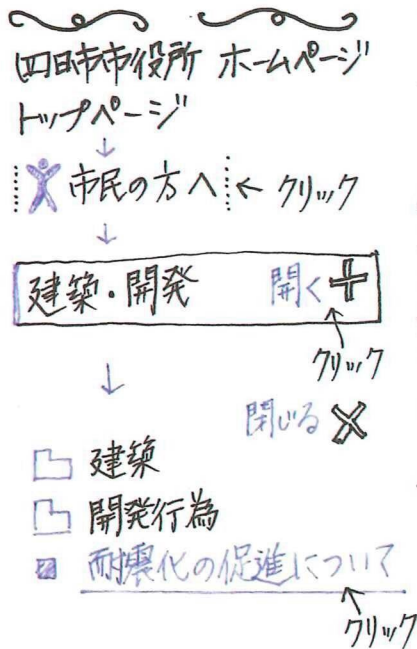 四日市市役所 ホームページ
トップページ
↓
市民の方へ ← クリック
↓
建築・開発 開く +
クリック
↓
閉じる ×
建築
開発行為
■ 耐震化の促進について
クリック